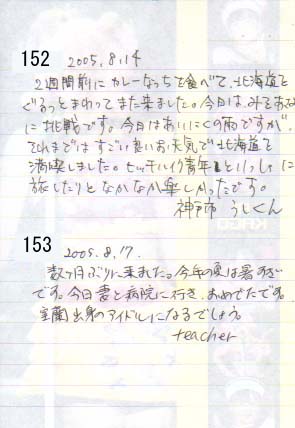 152 2005.8.14
2週間前にカレーなっちを食べて、北海道を
ぐるっとまわってまた来ました。今日は、みそ
に挑戦です。今日はあいにくの雨ですが、
それまではすごい良いお天気で北海道を
満喫しました。ヒッチハイク青年といっしょに
旅したりとなかなか楽しかったです。
神戸市 うしくん
153 2005.8.17.
数ヶ月ぶりに来ました。今年の夏は暑すぎ
です。今日妻と病院に行き、おめでたです。
室蘭出身のアイドルになるでしょう。
teacher